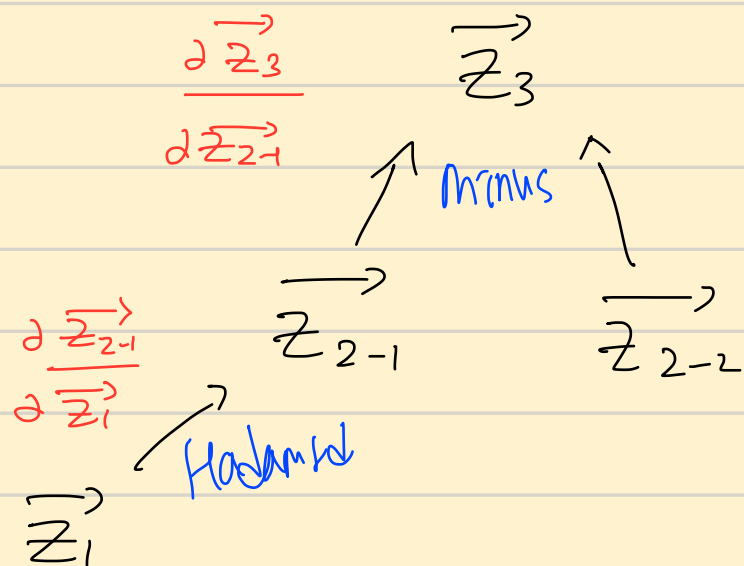 ∂z⃗₃ / ∂z⃗₂₋₁
z⃗₃
minus
z⃗₂₋₁
z⃗₂₋₂
∂z⃗₂₋₁ / ∂z⃗₁
Hadamrd
z⃗₁